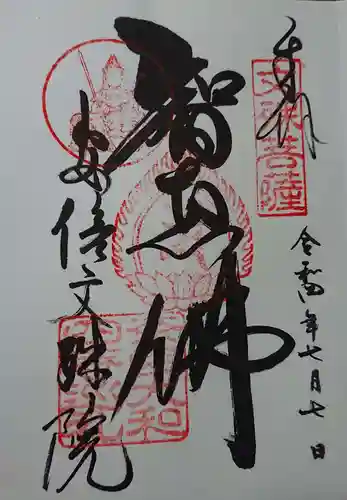 奉拝
文殊菩薩
令和四年七月七日
智恵佛
安倍文殊院